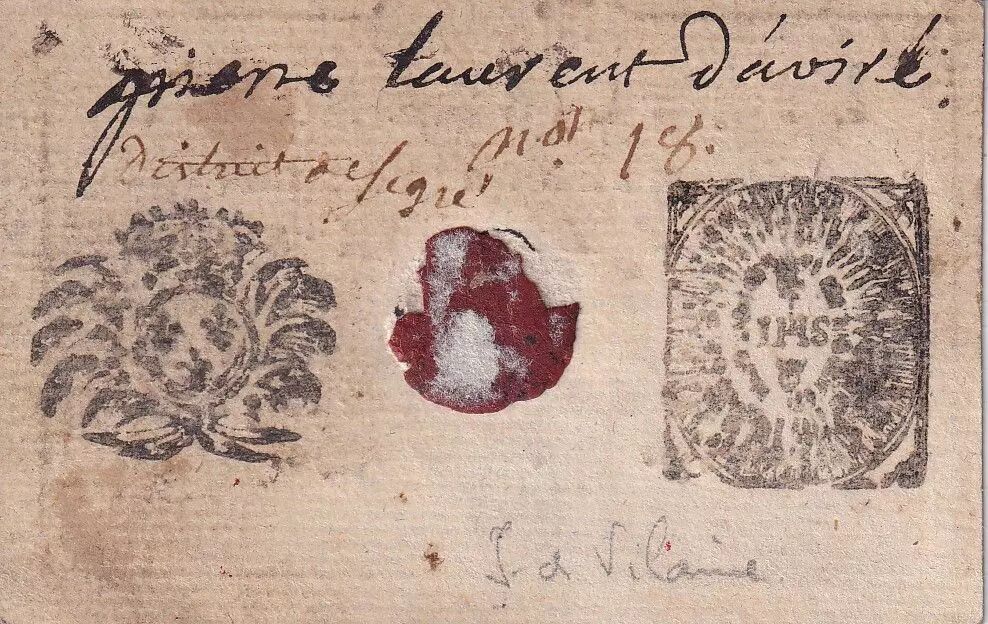 pierre laurent d'aviré.
District de Segré Not 18.
IHS
I. et Vilaine